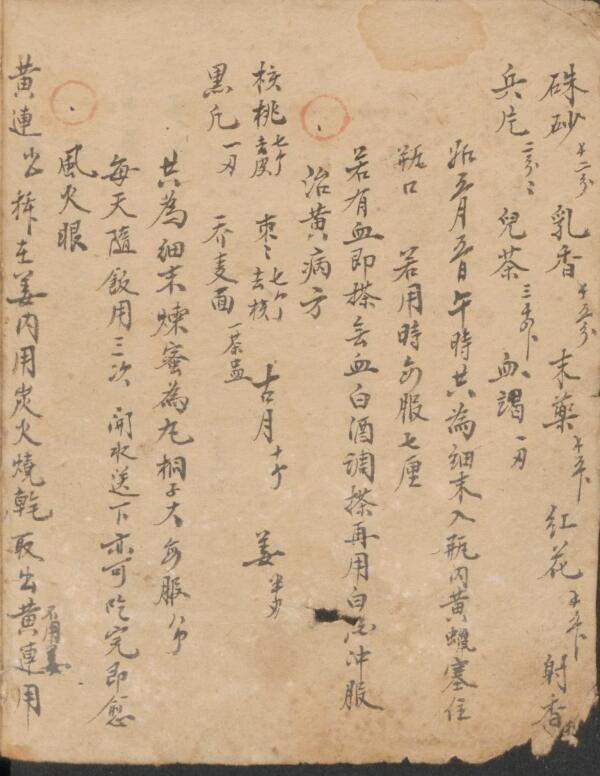 硃砂 乳香 末藥 紅花 射香
兵片 二分 兒茶 血竭 一刃
五月五日午時共為細末入瓶內黃蠟塞住
瓶口 若用時每服七厘
若有血即搽無血白酒調搽再用白酒沖服
治黃病方
核桃 七个 去皮 枣 七个 去核 古月 十个 姜
黑凡 一刃 乔麦面 一茶盅
共為細末煉蜜為丸桐子大每服
每天隨飯用三次 開水送下亦可吃完即愈
風火眼
黃連 在姜內用炭火燒乾取出黃連用
不用姜